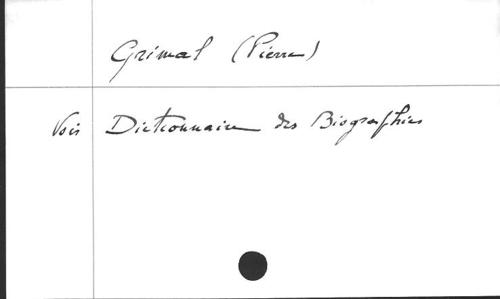 Grimal (Pierre)
Vois Dictionnaire des Biographies